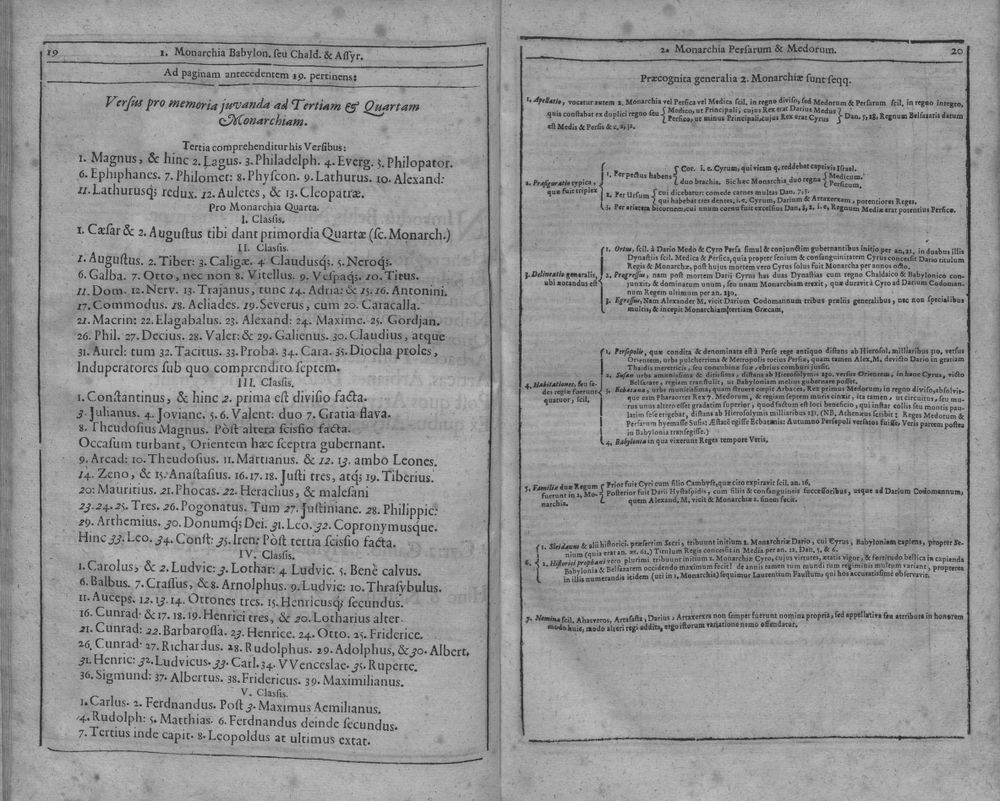 19
1. Monarchia Babylon. seu Chald. & Assyr.
Ad paginam antecedentem 19. pertinens:
Versus pro memoria juvanda ad Tertiam & Quartam
Monarchiam.
Tertia comprehenditur his Versibus:
1. Magnus, & hinc 2. Lagus. 3. Philadelph. 4. Everg. 5. Philopator.
6. Ephiphanes. 7. Philomet: 8. Physcon. 9. Lathurus. 10. Alexand:
11. Lathurusq; redux. 12. Auletes, & 13. Cleopatræ.
Pro Monarchia Quarta.
I. Classis.
1. Cæsar & 2. Augustus tibi dant primordia Quartæ (sc. Monarch.)
II. Classis.
1. Augustus. 2. Tiber: 3. Caligæ. 4 Claudusq;. 5. Neroq;.
6. Galba. 7. Otto, nec non 8. Vitellus. 9. Vespaq;. 10. Titus.
11. Dom. 12. Nerv. 13. Trajanus, tunc 14. Adria: & 15. 16. Antonini.
17. Commodus. 18. Aeliades. 19. Severus, cum 20. Caracalla.
21. Macrin: 22. Elagabalus. 23. Alexand: 24. Maxime. 25. Gordjan.
26. Phil. 27. Decius. 28. Valer: & 29. Galienus. 30. Claudius, atque
31. Aurel: tum 32. Tacitus. 33. Proba. 34. Cara. 35. Dioclia proles,
Induperatores sub quo comprendito septem.
III. Classis.
1. Constantinus, & hinc 2. prima est divisio facta.
3. Julianus. 4. Joviane. 5. 6. Valent: duo 7. Gratia flava.
8. Theudosius Magnus. Pòst altera scissio facta.
Occasum turbant, Orientem hæc sceptra gubernant.
9. Arcad: 10. Theudosius. 11. Martianus. & 12. 13. ambo Leones.
14. Zeno, & 15. Anastasius. 16. 17. 18. Justi tres, atq; 19. Tiberius.
20: Mauritius. 21. Phocas. 22. Heraclius, & malesani
23. 24. 25. Tres. 26. Pogonatus. Tum 27. Justiniane. 28. Philippic:
29. Arthemius. 30. Donumq; Dei. 31. Leo. 32. Copronymusque.
Hinc 33. Leo. 34. Const: 35. Iren: Pòst tertia scissio facta.
IV. Classis.
1. Carolus, & 2. Ludvic: 3. Lothar: 4 Ludvic. 5. Benè calvus.
6. Balbus. 7. Crassus, & 8. Arnolphus. 9. Ludvic: 10. Thrasybulus.
11. Auceps. 12. 13. 14. Ottones tres. 15. Henricusq; secundus.
16. Cunrad: & 17. 18. 19. Henrici tres, & 20. Lotharius alter.
21. Cunrad: 22. Barbarossa. 23. Henrice. 24. Otto. 25. Friderice.
26. Cunrad: 27. Richardus. 28. Rudolphus. 29. Adolphus, & 30. Albert.
31. Henric: 32. Ludvicus. 33. Carl. 34. VVenceslae. 35. Ruperte.
36. Sigmund: 37. Albertus. 38. Fridericus. 39. Maximilianus.
V. Classis.
1. Carlus. 2. Ferdnandus. Pòst 3. Maximus Aemilianus.
4. Rudolph: 5. Matthias. 6. Ferdnandus deinde secundus.
7. Tertius inde capit. 8. Leopoldus at ultimus extat.
2. Monarchia Persarum & Medorum.
20
Præcognita generalia 2. Monarchiæ sunt seqq.
1. Apellatio, vocatur autem 2. Monarchia vel Persica vel Medica scil. in regno diviso, sed Medorum & Persarum scil. in regno integro,
quia constabat ex duplici regno seu { Medico, ut Principali, cujus Rex erat Darius Medus
Persico, ut minus Principali, cujus Rex erat Cyrus } Dan. 5, 28. Regnum Belsazaris datum
est Medis & Persis & c. 2, 32.
2. Præfiguratio typica, quæ fuit triplex
1. Per pectus habens { Cor. i. e. Cyrum, qui vivam q. reddebat captivis Israel.
duo brachia. Sic hæc Monarchia duo regna { Medicum.
Persicum.
2. Per Ursum { cui dicebatur: comede carnes multas Dan. 7, 5.
qui habebat tres dentes, i. e. Cyrum, Darium & Artaxerxem, potentiores Reges.
3. Per arietem bicornem, cui unum cornu fuit excelsius Dan. 8, 2. i. e. Regnum Mediæ erat potentius Persico.
3. Delineatio generalis, ubi notandus est
1. Ortus, scil. à Dario Medo & Cyro Persa simul & conjunctim gubernantibus initio per an. 22, in duabus illis
Dynastiis scil. Medica & Persica, quia propter senium & consanguinitatem Cyrus concessit Dario titulum
Regis & Monarchæ, post hujus mortem vero Cyrus solus fuit Monarcha per annos octo.
2. Progressus, nam post mortem Darii Cyrus has duas Dynastias cum regno Chaldaico & Babylonico conjunxit,
& dominatum unum, seu unam Monarchiam erexit, quæ duravit à Cyro ad Darium Codomannum
Regem ultimum per an. 230.
3. Egressus, Nam Alexander M. vicit Darium Codomannum tribus præliis generalibus, nec non specialibus
multis, & incepit Monarchiam tertiam Græcam,
4. Habitationes, seu sedes regiæ fuerunt quatuor, scil.
1. Persepolis, quæ condita & denominata est à Perse rege antiquo distans ab Hierosol. milliaribus 310, versus
Orientem, urbs pulcherrima & Metropolis totius Persiæ, quam tamen Alex. M. devicto Dario in gratiam
Thaidis meretricis, seu concubinæ suæ, ebrius comburi jussit.
2. Susæ urbs amœnissima & ditissima, distans ab Hierosolymis 230. versus Orientem, in hanc Cyrus, victo
Belsazare, regiam transtulit, ut Babyloniam melius gubernare posset.
3. Ecbatana urbs munitissima, quam struere cœpit Arbaces, Rex primus Medorum in regno diviso, absolvitque
eam Phraortes Rex 7. Medorum, & regiam septem muris cinxit, ita tamen, ut circuitus, seu murus
unus altero esset gradatim superior, quod factum est loci beneficio, qui instar collis seu montis paulatim
sese erigebat, distans ab Hierosolymis milliaribus 251. (NB. Athenæus scribit: Reges Medorum &
Persarum hyemasse Susis: Æstatē egisse Ecbatanis: Autumno Persepoli versatos fuisse, Veris partem postea
in Babylonia transegisse.)
4. Babylonia in qua vixerunt Reges tempore Veris,
5. Familiæ duæ Regum fuerunt in 2. Monarchia.
Prior fuit Cyri cum filio Cambyse, quæ cito expiravit scil. an. 16.
Posterior fuit Darii Hystaspidis, cum filiis & consanguineis successoribus, usque ad Darium Codomannum,
quem Alexand. M. vicit & Monarchiæ 2. finem fecit.
6.
1. Sleidanus & alii historici, præsertim Sacri, tribuunt initium 2. Monarchiæ Dario, cui Cyrus, Babyloniam capiens, propter Senium
(quia erat an. æt. 62.) Titulum Regis concessit in Media per an. 22, Dan. 5. & 6.
2. Historici prophani vero plurimi tribuunt initium 2. Monarchiæ Cyro, cujus virtutes, ætatis vigor, & fortitudo bellica in capienda
Babylonia & Belsazarem occidendo maximum fecit! de annis tamen tum mundi tum regiminis multum variant, propterea
in illis numerandis itidem (uti in 1. Monarchia) sequimur Laurentium Faustum, qui hos accuratissimè observavit.
7. Nomina scil. Ahasverus, Artasasta, Darius & Artaxerxes non semper fuerunt nomina propria, sed appellativa seu attributa in honorem
modo huic, modo alteri regi addita, ergo istorum variatione nemo offendatur,